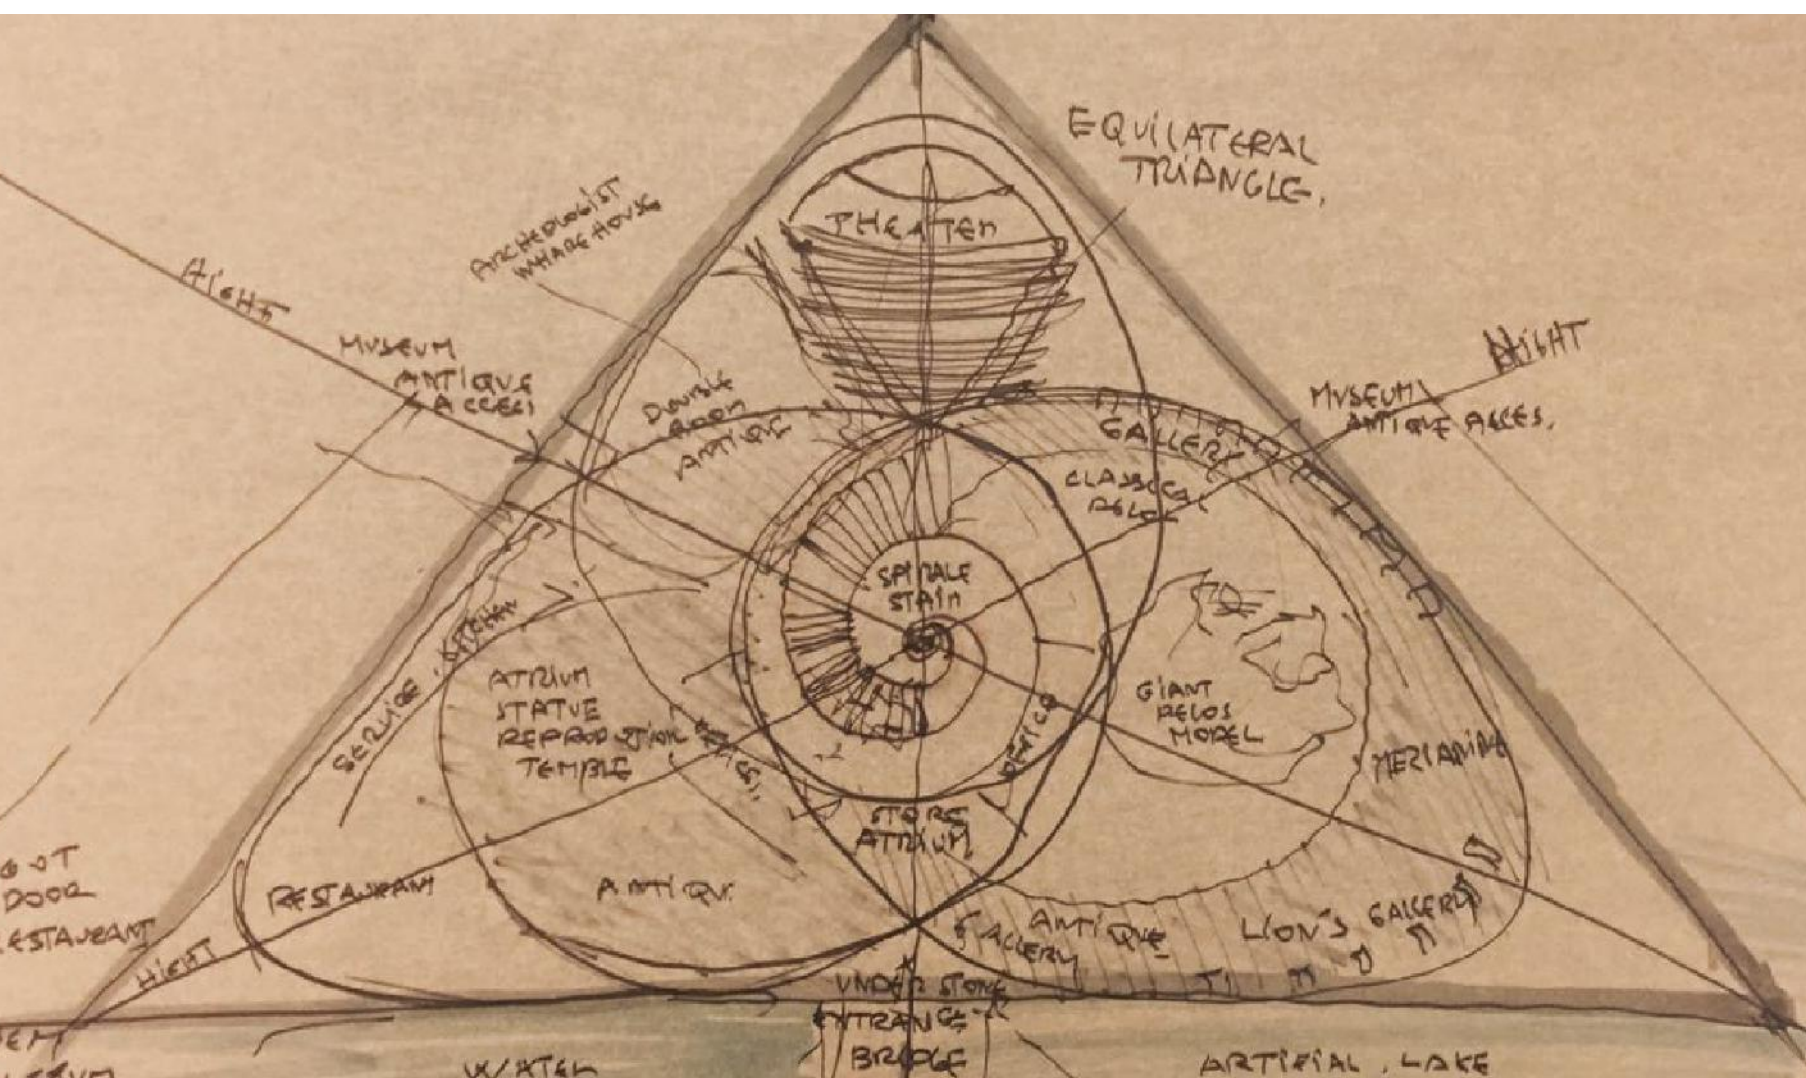 EQUILATERAL
TRIANGLE.
ARCHEOLOGIST
WHAREHOUSE
THEATER
HIGHT
HIGHT
MUSEUM
ANTIQUE
ACCES
MUSEUM
ANTIQUE ACCES.
DOUBLE
ROOM
ANTIQUE
GALLERY
CLASSICAL
DELOS
SPIRALE
STAIR
SERVICE . KITCHEN
ATRIUM
STATUE
REPRODUCTION
TEMPLE
GIANT
DELOS
MODEL
OFFICE
MEZZANINE
STORE
ATRIUM
OUT
DOOR
RESTAURANT
RESTAURANT
ANTIQU.
HIGHT
ANTIQUE
GALLERY
LION'S GALLERY
UNDER STONE
ENTRANCE
BRIDGE
WATER
ARTIFIAL . LAKE